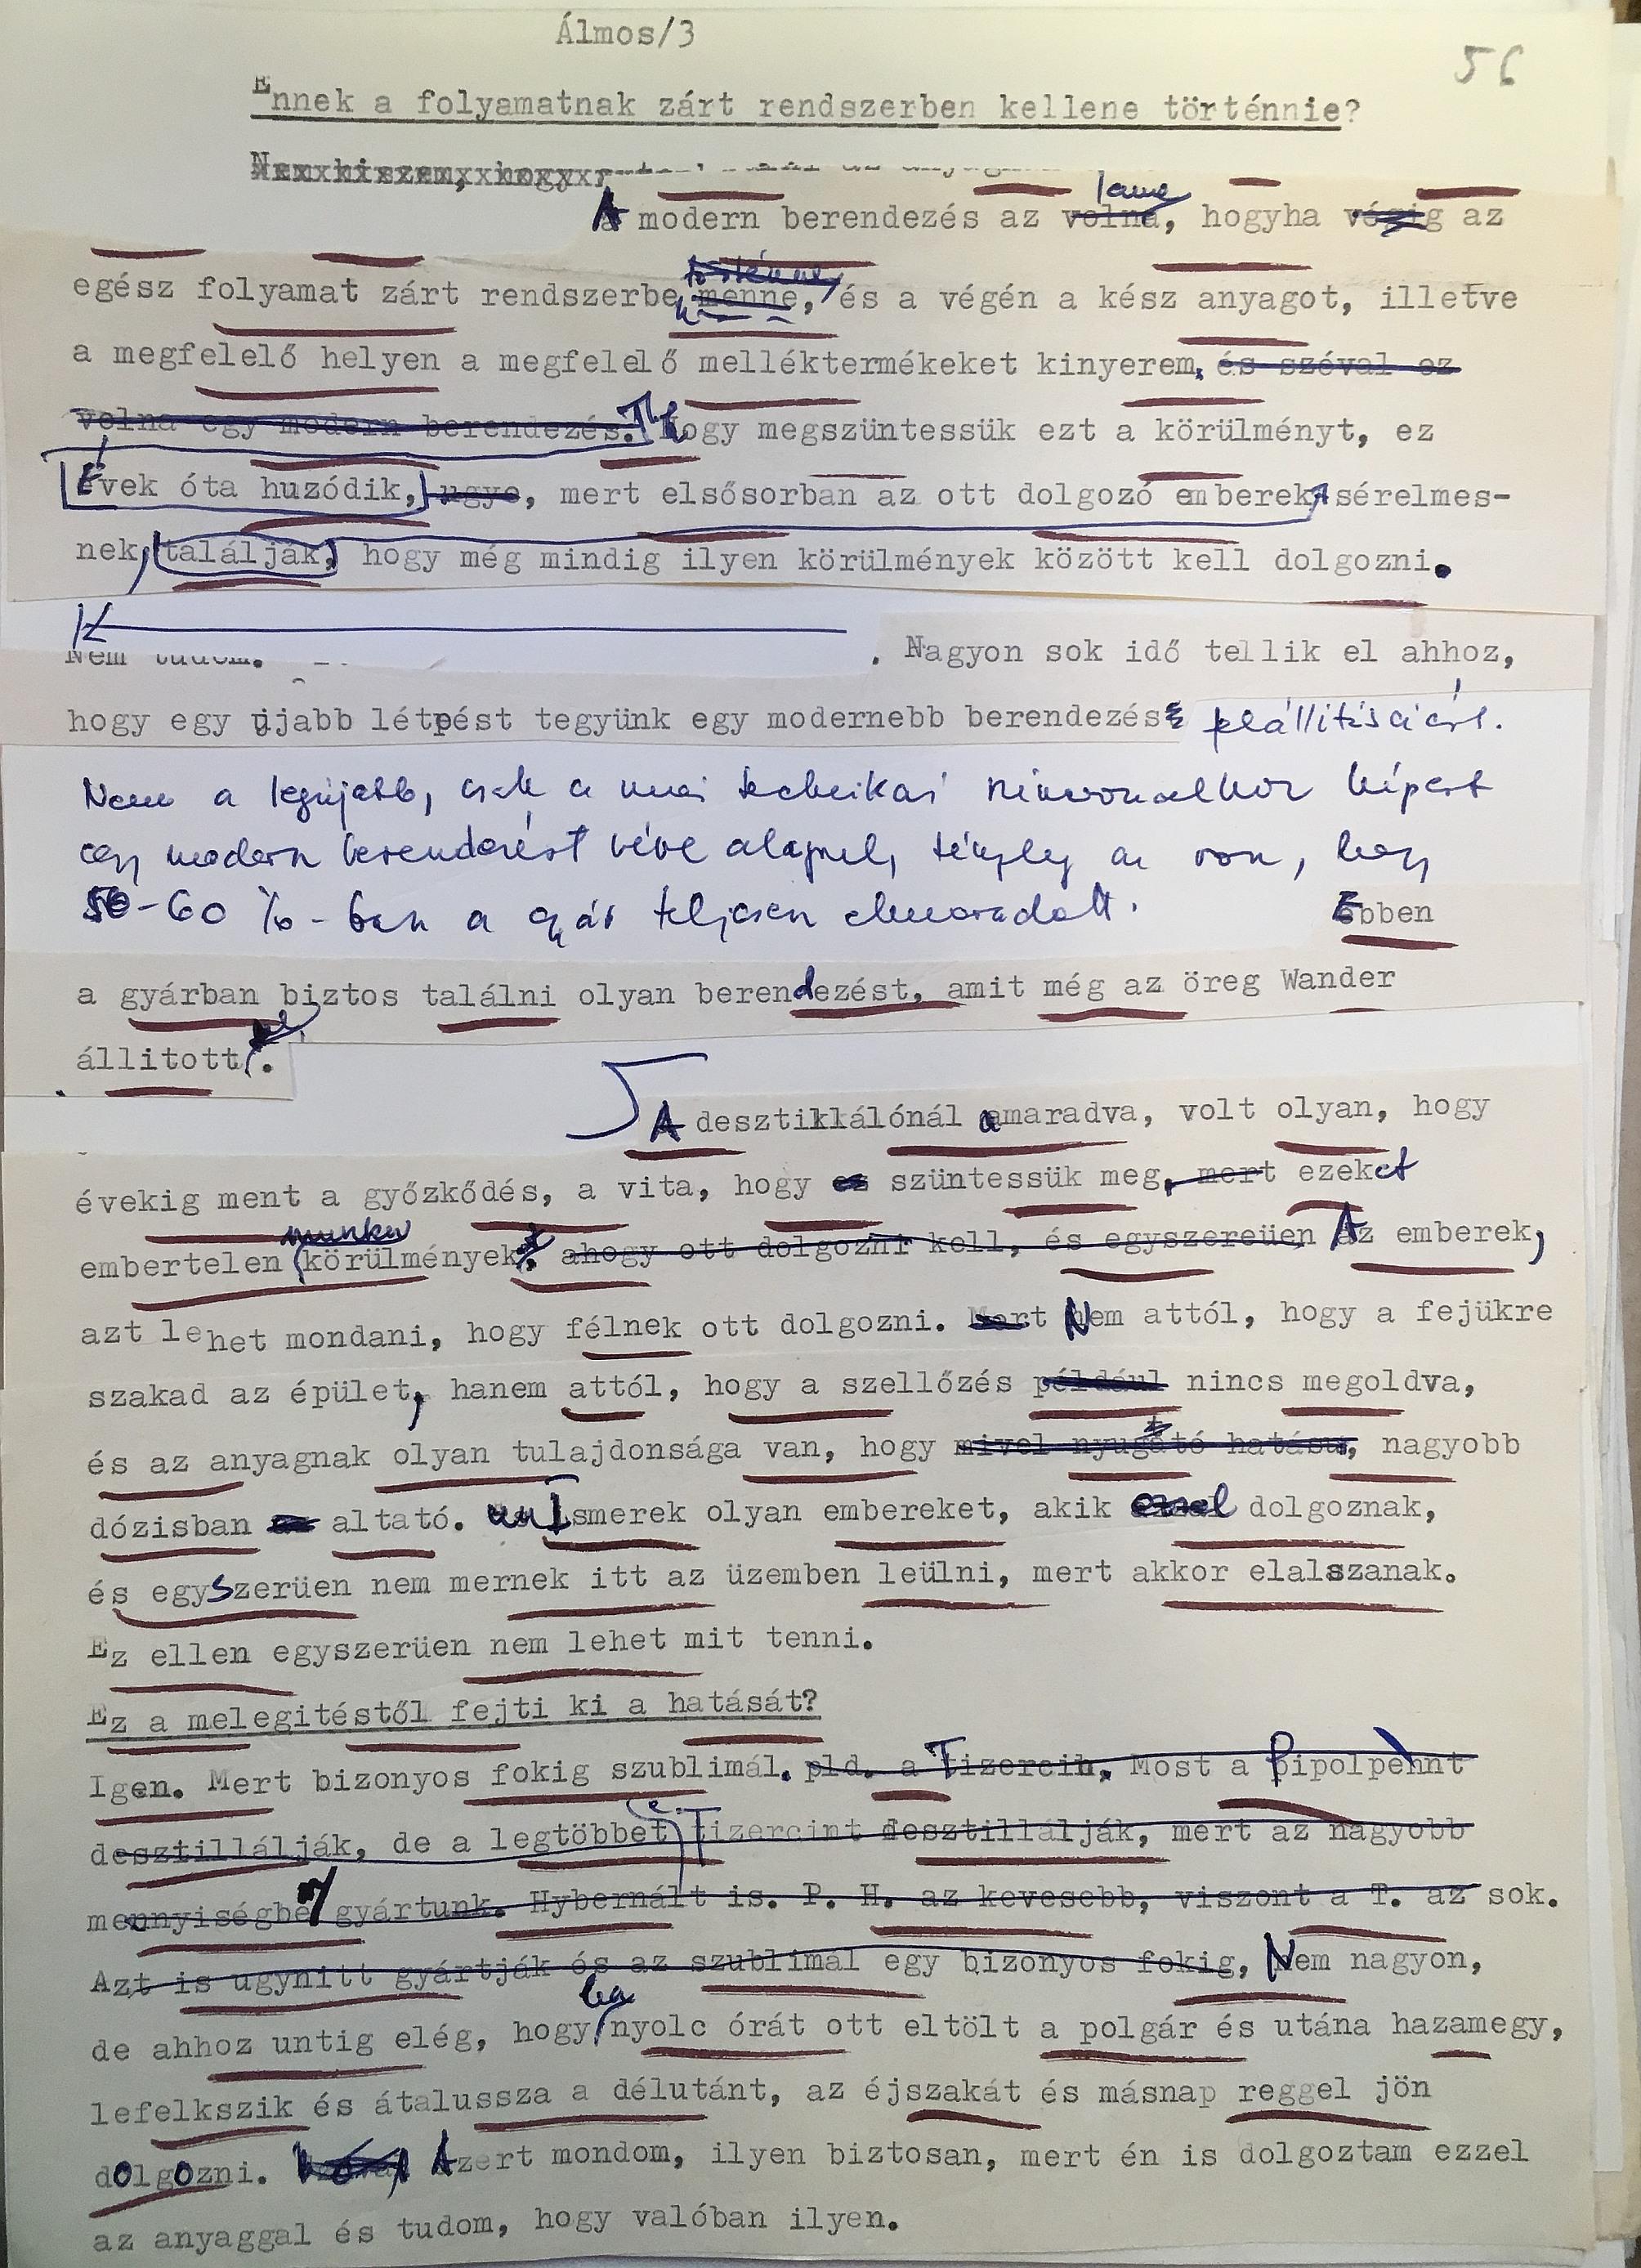 Álmos/3
56
Ennek a folyamatnak zárt rendszerben kellene történnie?
Nem hiszem, hogy
lenne
A modern berendezés az volna, hogyha végig az
történne,
egész folyamat zárt rendszerbe menne, és a végén a kész anyagot, illetve
a megfelelő helyen a megfelelő melléktermékeket kinyerem, és szóval ez
volna egy modern berendezés. Hogy megszüntessük ezt a körülményt, ez
Évek óta huzódik, ugye, mert elsősorban az ott dolgozó emberek sérelmes-
nek, találják, hogy még mindig ilyen körülmények között kell dolgozni.
Nem tudom. . Nagyon sok idő tellik el ahhoz,
hogy egy újabb létpést tegyünk egy modernebb berendezés előállításáért.
Nem a legújabb, csak a mai technikai színvonalhoz képest
egy modern berendezést véve alapul, tényleg az van, hogy
50-60 %-ban a gyár teljesen elmaradott.
Ebben
a gyárban biztos találni olyan berendezést, amit még az öreg Wander
állitott .
A desztikkálónál amaradva, volt olyan, hogy
évekig ment a győzködés, a vita, hogy ez szüntessük meg, mert ezeket
munka
embertelen körülmények. ahogy ott dolgozni kell, és egyszereüen Az emberek,
azt lehet mondani, hogy félnek ott dolgozni. Mert Nem attól, hogy a fejükre
szakad az épület, hanem attól, hogy a szellőzés például nincs megoldva,
és az anyagnak olyan tulajdonsága van, hogy mivel nyugtató hatásu, nagyobb
dózisban altató. Ismerek olyan embereket, akik ezzel dolgoznak,
és egyszerüen nem mernek itt az üzemben leülni, mert akkor elalszanak.
Ez ellen egyszerüen nem lehet mit tenni.
Ez a melegitéstől fejti ki a hatását?
Igen. Mert bizonyos fokig szublimál. pld. a Tizercin, Most a Pipolpehnt
desztillálják, de a legtöbbet Tizercint desztillálják, mert az nagyobb
mennyiségben gyártunk. Hybernált is. P. H. az kevesebb, viszont a T. az sok.
Azt is ugynitt gyártják és az szublimál egy bizonyos fokig, Nem nagyon,
ha
de ahhoz untig elég, hogy nyolc órát ott eltölt a polgár és utána hazamegy,
lefelkszik és átalussza a délutánt, az éjszakát és másnap reggel jön
dolgozni. Azert mondom, ilyen biztosan, mert én is dolgoztam ezzel
az anyaggal és tudom, hogy valóban ilyen.